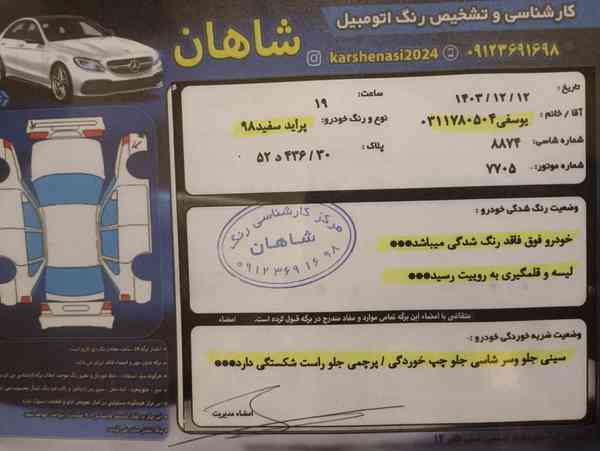 کارشناسی و تشخیص رنگ اتومبیل
شاهان
karshenasi2024 ۰۹۱۲۳۶۹۱۶۹۸
تاریخ : ۱۴۰۳/۱۲/۱۲ ساعت: ۱۹
آقا / خانم : یوسفی۰۳۱۱۷۸۰۵۰۴ نوع و رنگ خودرو: پراید سفید۹۸
شماره شاسی: ۸۸۷۴ پلاک : ۳۰ / ۴۳۶ د ۵۲
شماره موتور: ۷۷۰۵
وضعیت رنگ شدگی خودرو :
خودرو فوق فاقد رنگ شدگی میباشد***
لیسه و قلمگیری به روییت رسید***
مرکز کارشناسی رنگ
شاهان
۰۹۱۲۳۶۹۱۶۹۸
متقاضی با امضاء این برگه تمامی موارد و مفاد مندرج در برگه قبول کرده است. امضاء
وضعیت ضربه خوردگی خودرو :
سینی جلو وسر شاسی جلو چپ خوردگی / پرچمی جلو راست شکستگی دارد***
امضاء مدیریت